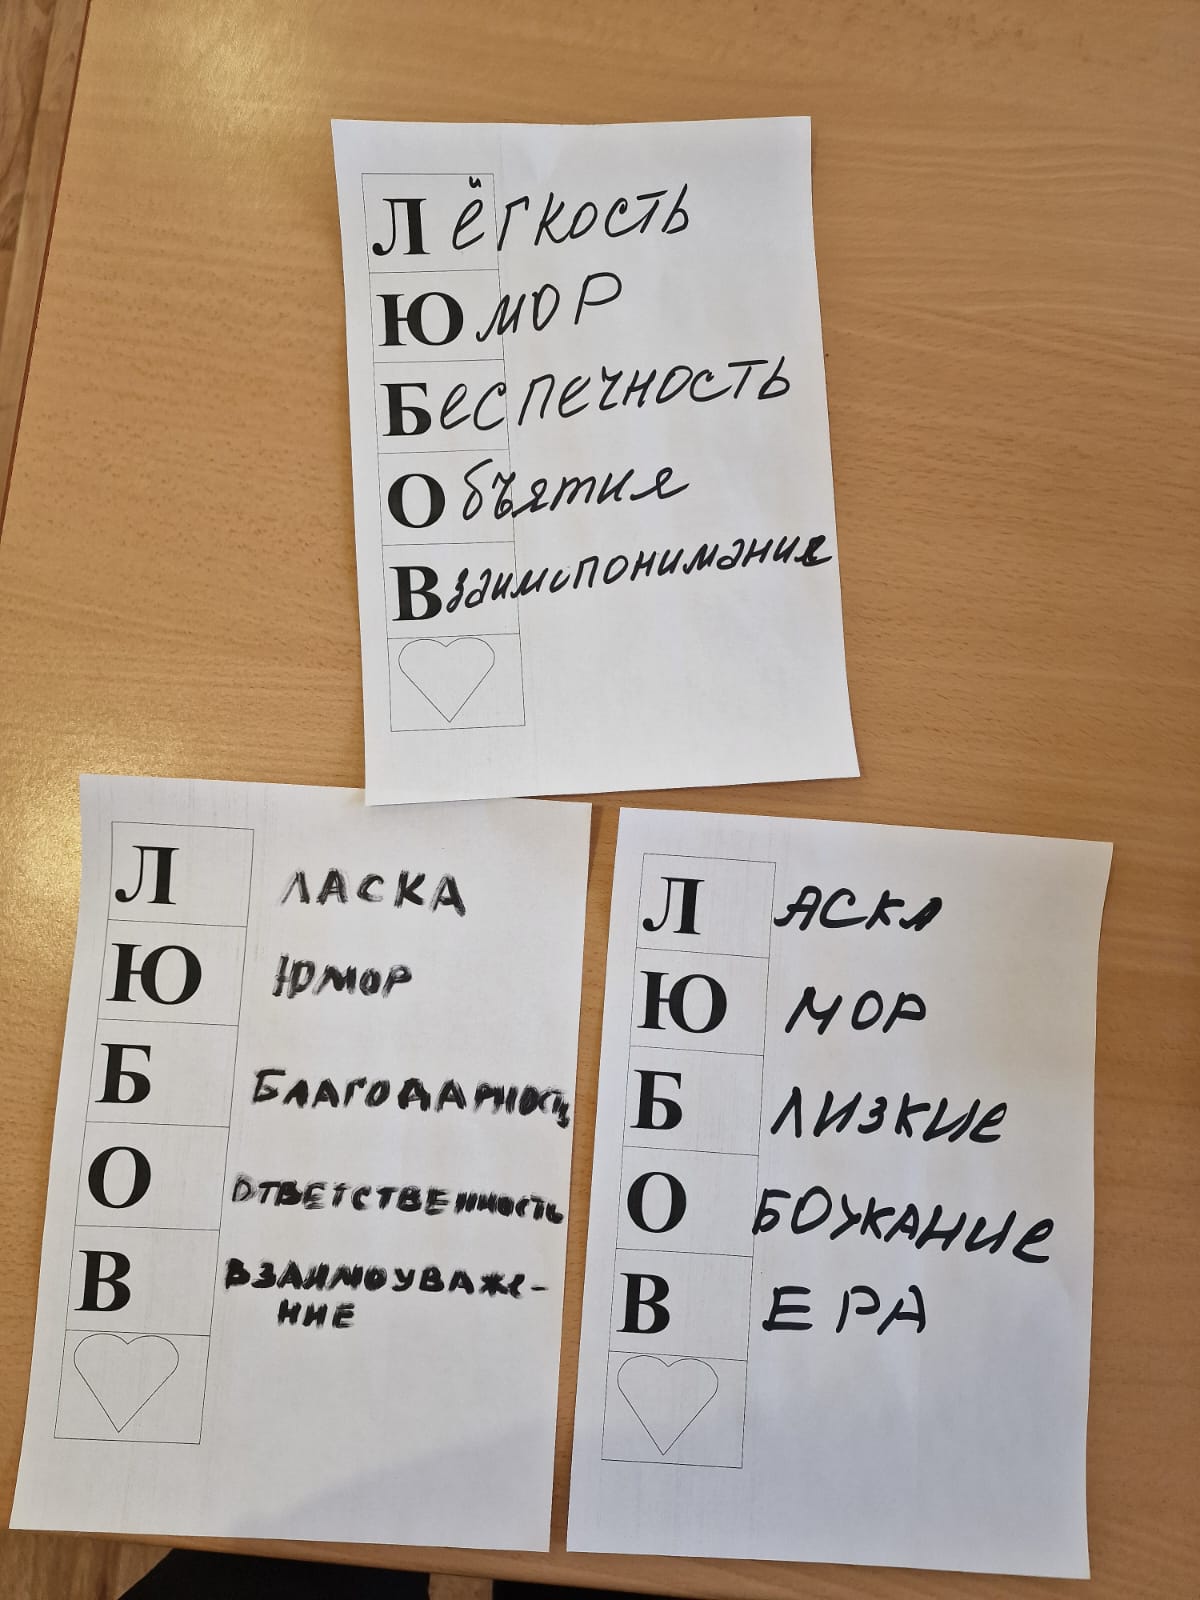 Лёгкость
Юмор
Беспечность
Объятия
Взаимопонимание
Л ЛАСКА
Ю ЮМОР
Б БЛАГОДАРНОСТЬ
О ОТВЕТСТВЕННОСТЬ
В ВЗАИМОУВАЖЕ-
НИЕ
ЛАСКА
ЮМОР
БЛИЗКИЕ
ОБОЖАНИЕ
ВЕРА